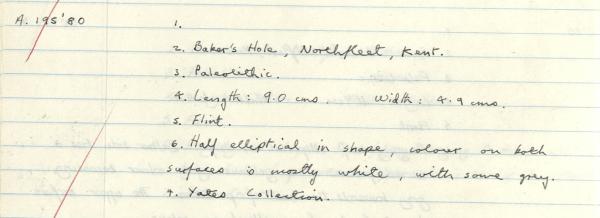 A. 195'80 1.
2. Baker's Hole, Northfleet, Kent.
3. Paleolithic.
4. Length: 9.0 cms. Width: 4.9 cms.
5. Flint.
6. Half elliptical in shape, colour on both
surfaces is mostly white, with some grey.
7. Yates Collection.